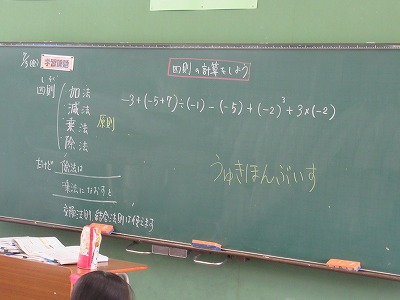 7/5(金) 学習課題
四則の計算をしよう
しそく
四則 加法
減法
乗法
除法
原則
-3+(-5+7)÷(-1)-(-5)+(-2)³+3×(-2)
だけど 除法は
乗法になおすと
交換法則、結合法則は使えます
うゅきほんぶいす